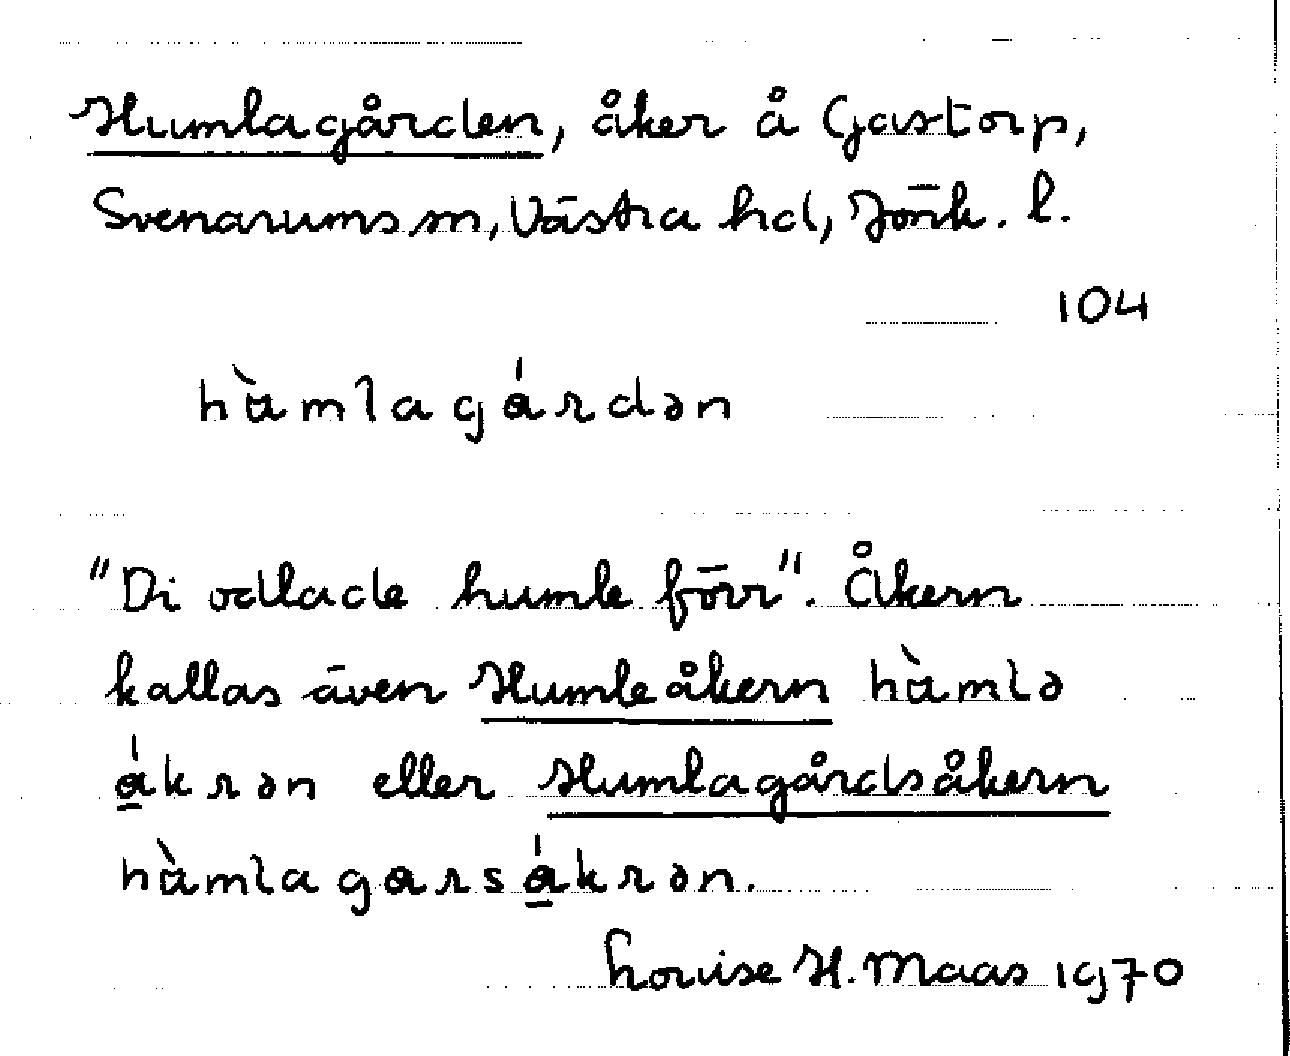 Humlagården, åker å Gastorp,
Svenarums sn, Västra hd, Jönk. l.
104
hàmlagárdən
"Di odlade humle förr". Åkern
kallas även Humleåkern hàmlə
ákrən eller Humlagårdsåkern
hàmlagarsákrən.
Louise H. Maas 1970